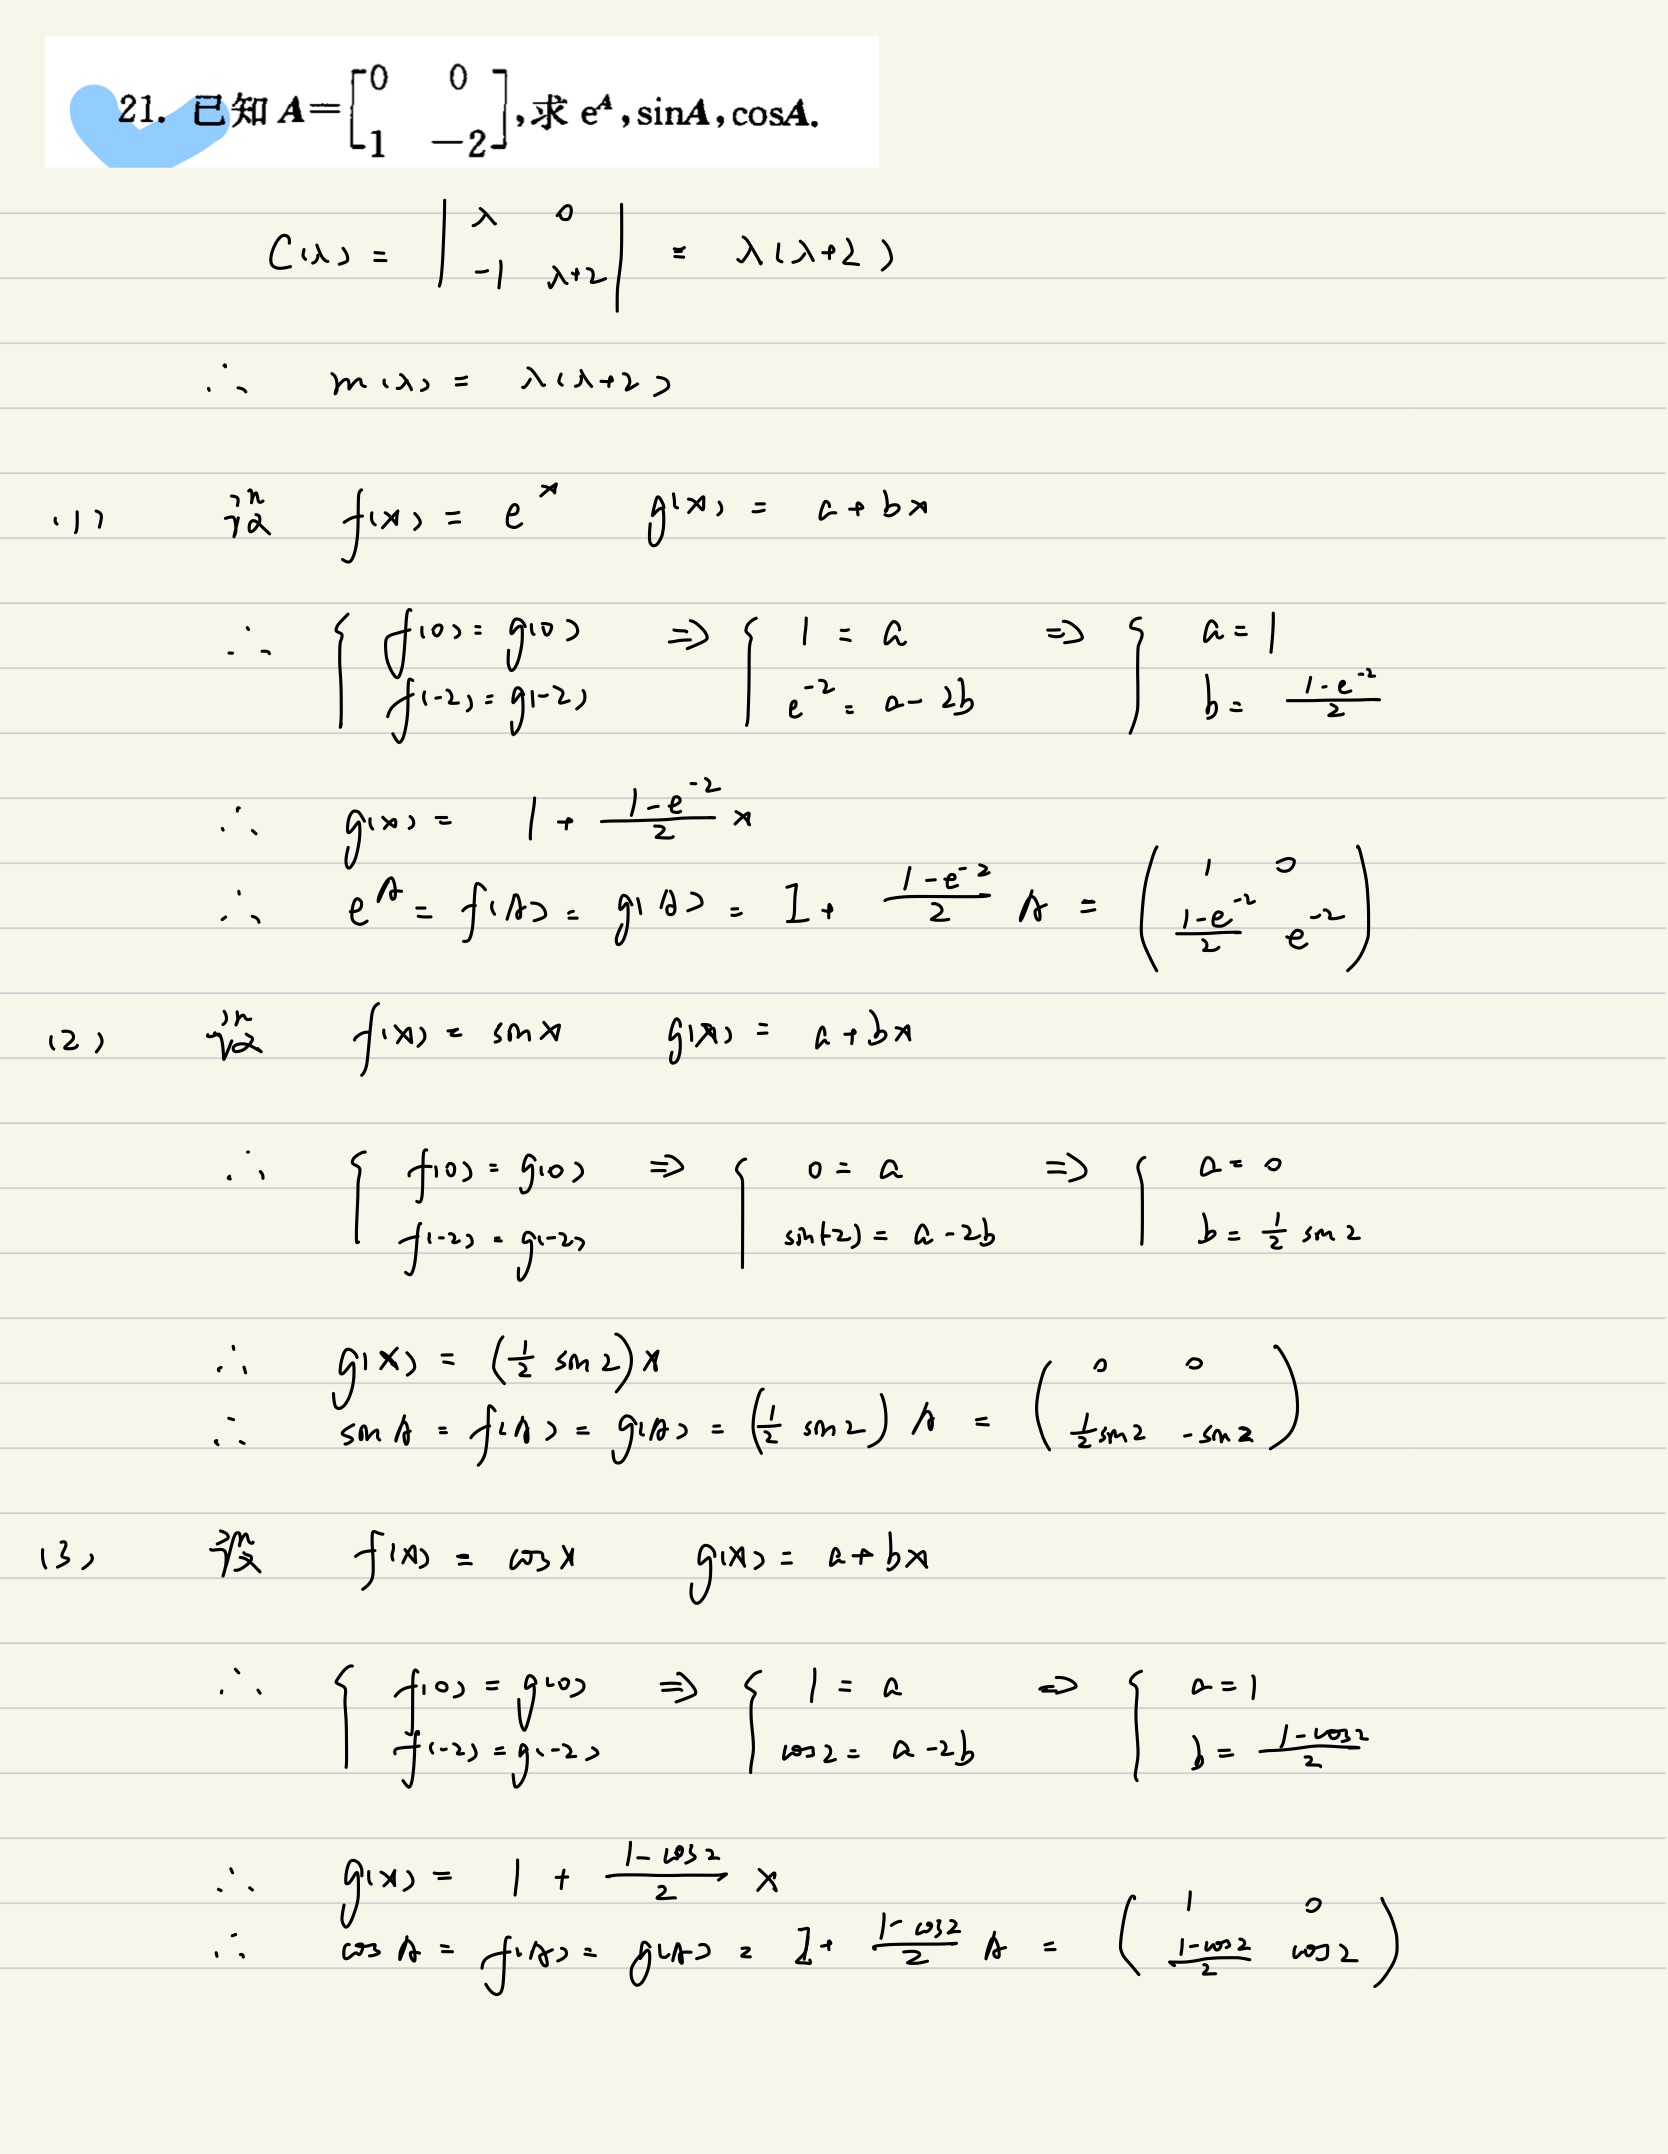 21. 已知 A = [0 0; 1 −2], 求 e^A, sinA, cosA.
C(λ) = | λ 0; -1 λ+2 | = λ(λ+2)
∴ m(λ) = λ(λ+2)
(1) 设 f(x) = e^x g(x) = a + bx
∴ { f(0) = g(0) ⇒ { 1 = a ⇒ { a = 1
f(-2) = g(-2) e^-2 = a - 2b b = (1-e^-2)/2
∴ g(x) = 1 + (1-e^-2)/2 x
∴ e^A = f(A) = g(A) = I + (1-e^-2)/2 A = (1 0; (1-e^-2)/2 e^-2)
(2) 设 f(x) = sin x g(x) = a + bx
∴ { f(0) = g(0) ⇒ { 0 = a ⇒ { a = 0
f(-2) = g(-2) sin(-2) = a - 2b b = 1/2 sin 2
∴ g(x) = (1/2 sin 2) x
∴ sin A = f(A) = g(A) = (1/2 sin 2) A = (0 0; 1/2 sin 2 -sin 2)
(3) 设 f(x) = cos x g(x) = a + bx
∴ { f(0) = g(0) ⇒ { 1 = a ⇒ { a = 1
f(-2) = g(-2) cos 2 = a - 2b b = (1-cos 2)/2
∴ g(x) = 1 + (1-cos 2)/2 x
∴ cos A = f(A) = g(A) = I + (1-cos 2)/2 A = (1 0; (1-cos 2)/2 cos 2)